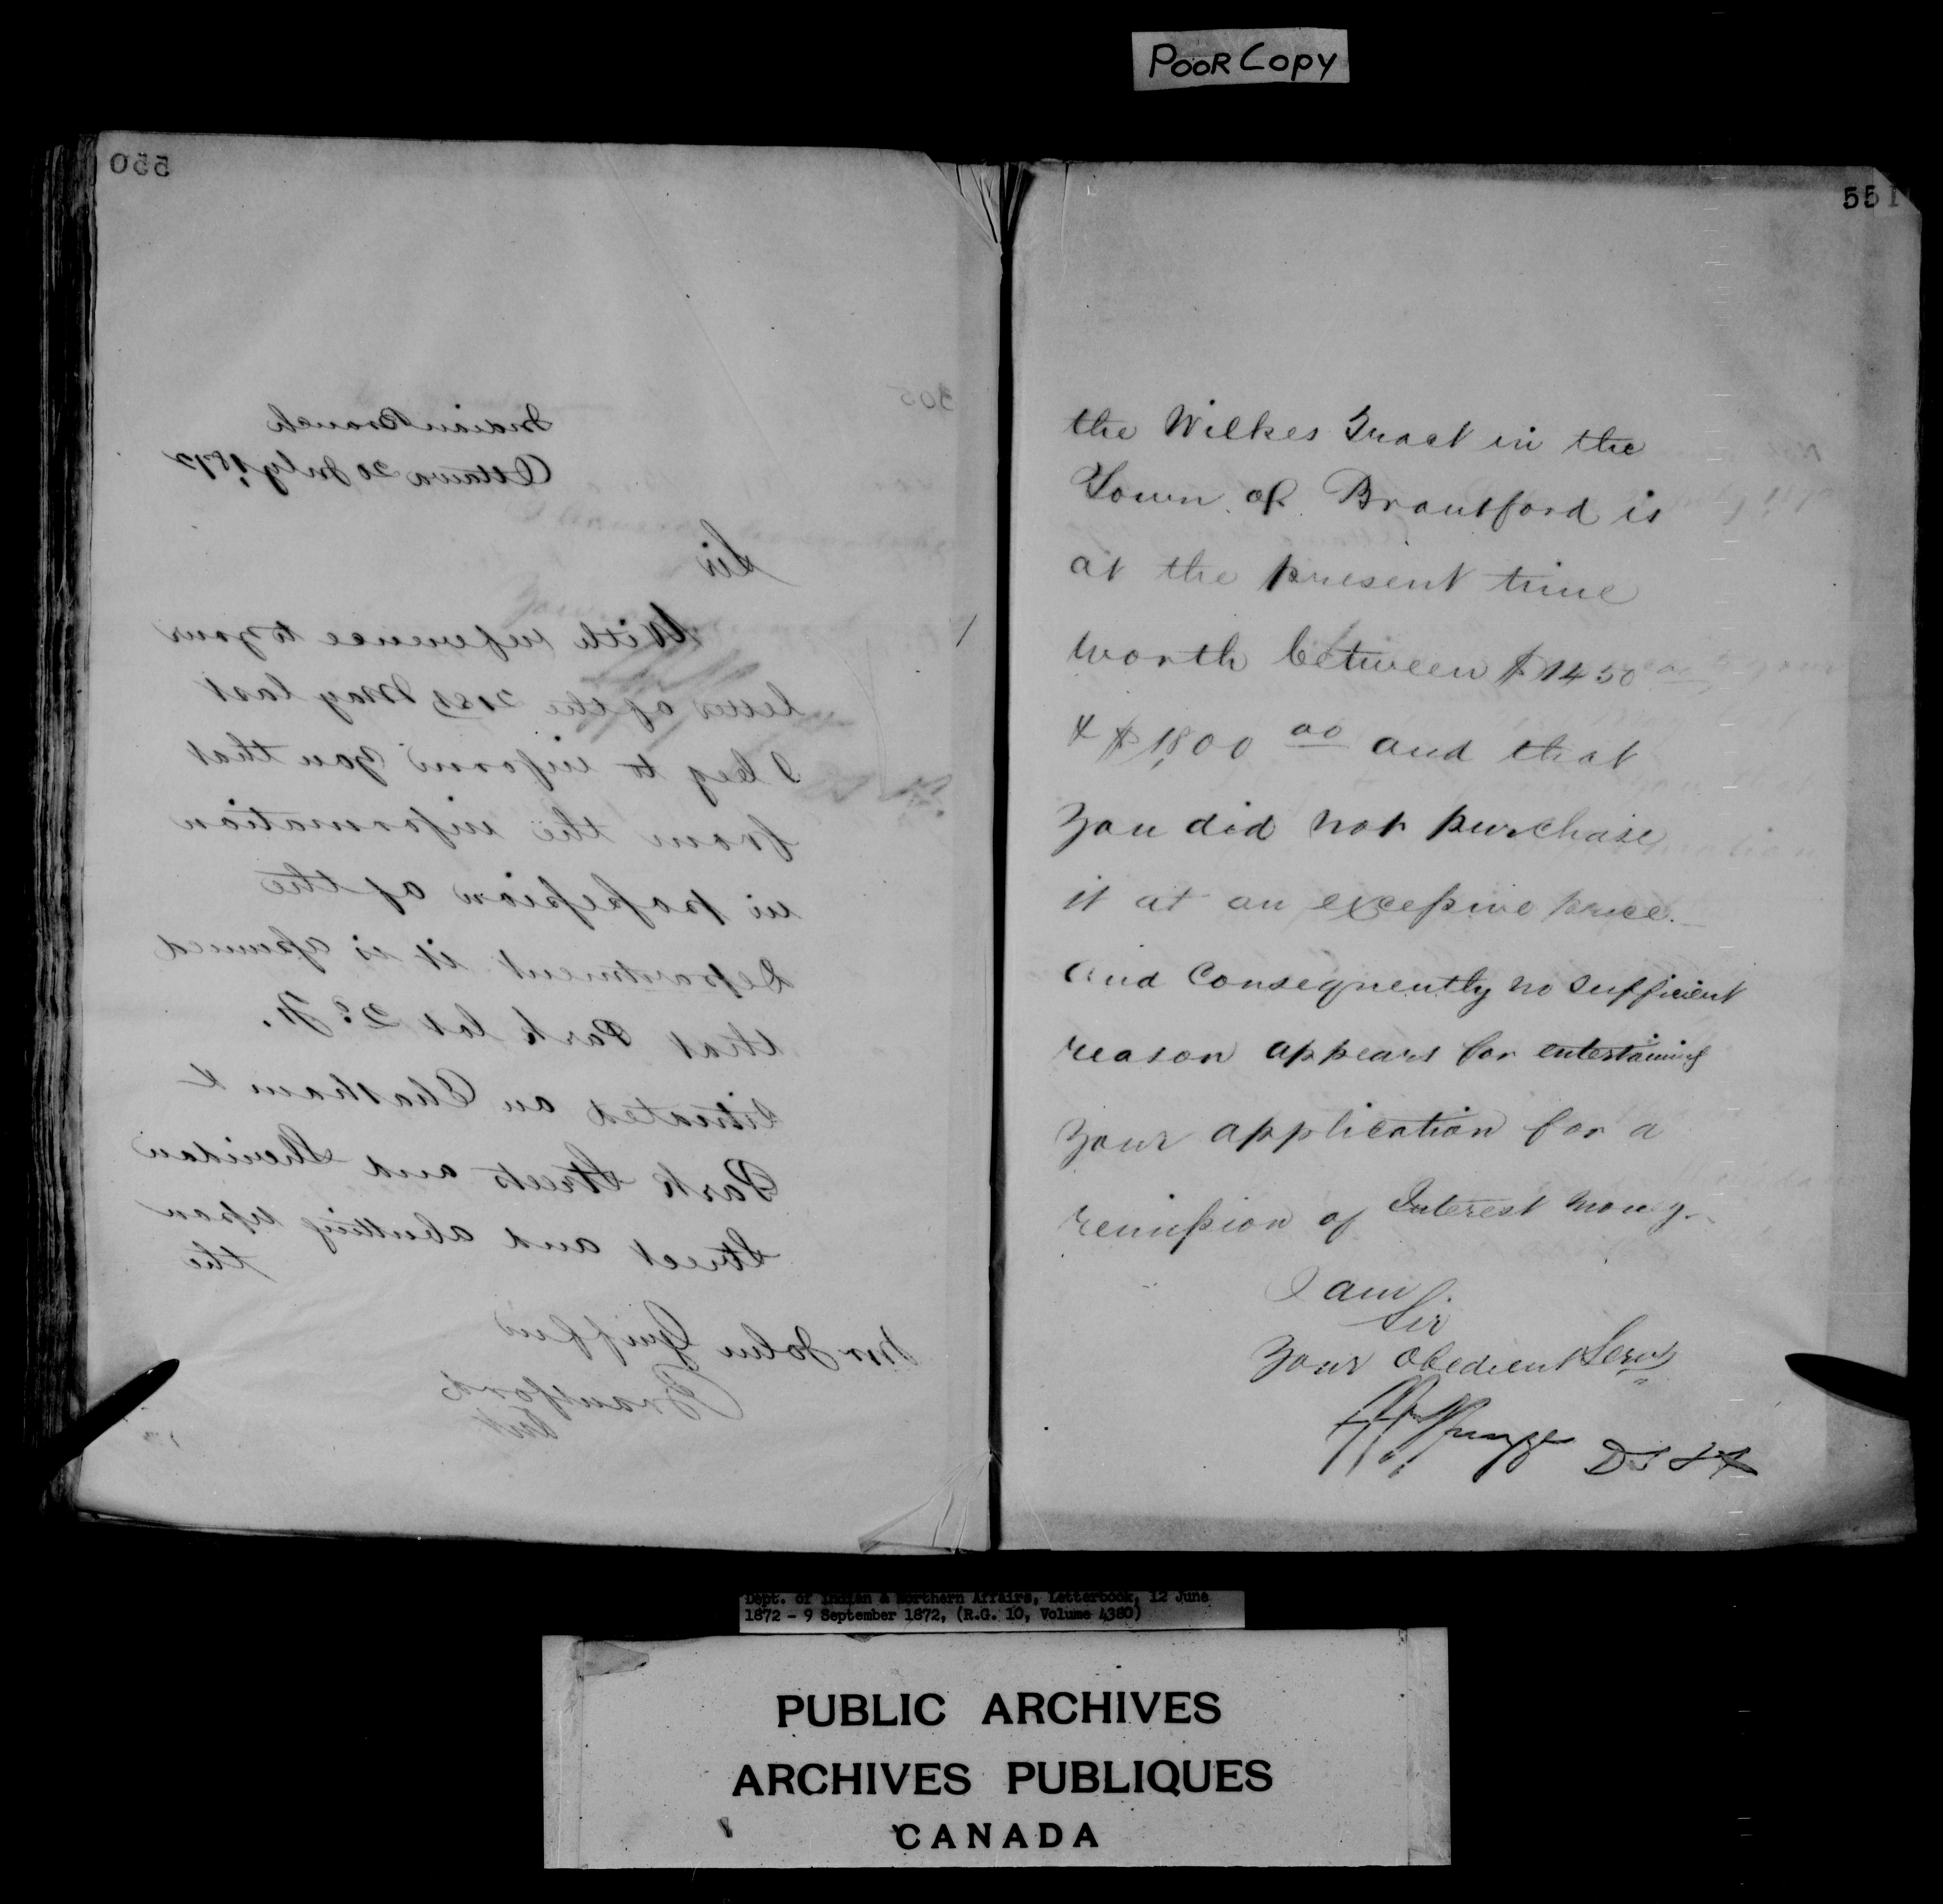 POOR COPY
550
Indian Branch
Ottawa 20 July 1872
Sir
With reference to your
letter of the 21st May last
I beg to inform you that
from the information
in possession of the
Department it is assumed
that Park lot 2
situated on Chatham &
Park Streets and Sheridan
Street and abutting upon
the
Mr John Griffin
Brantford
Ont
551
the Wilkes Tract in the
Town of Brantford is
at the present time
worth between $1450
& $1800 00 and that
you did not purchase
it at an excessive price.
and Consequently no sufficient
reason appears for entertaining
your application for a
remission of Interest money.
I am
Sir
Your Obedient Servt
Dept. of Indian & Northern Affairs, Letterbook, 12 June
1872 - 9 September 1872, (R.G. 10, Volume 4380)
PUBLIC ARCHIVES
ARCHIVES PUBLIQUES
CANADA